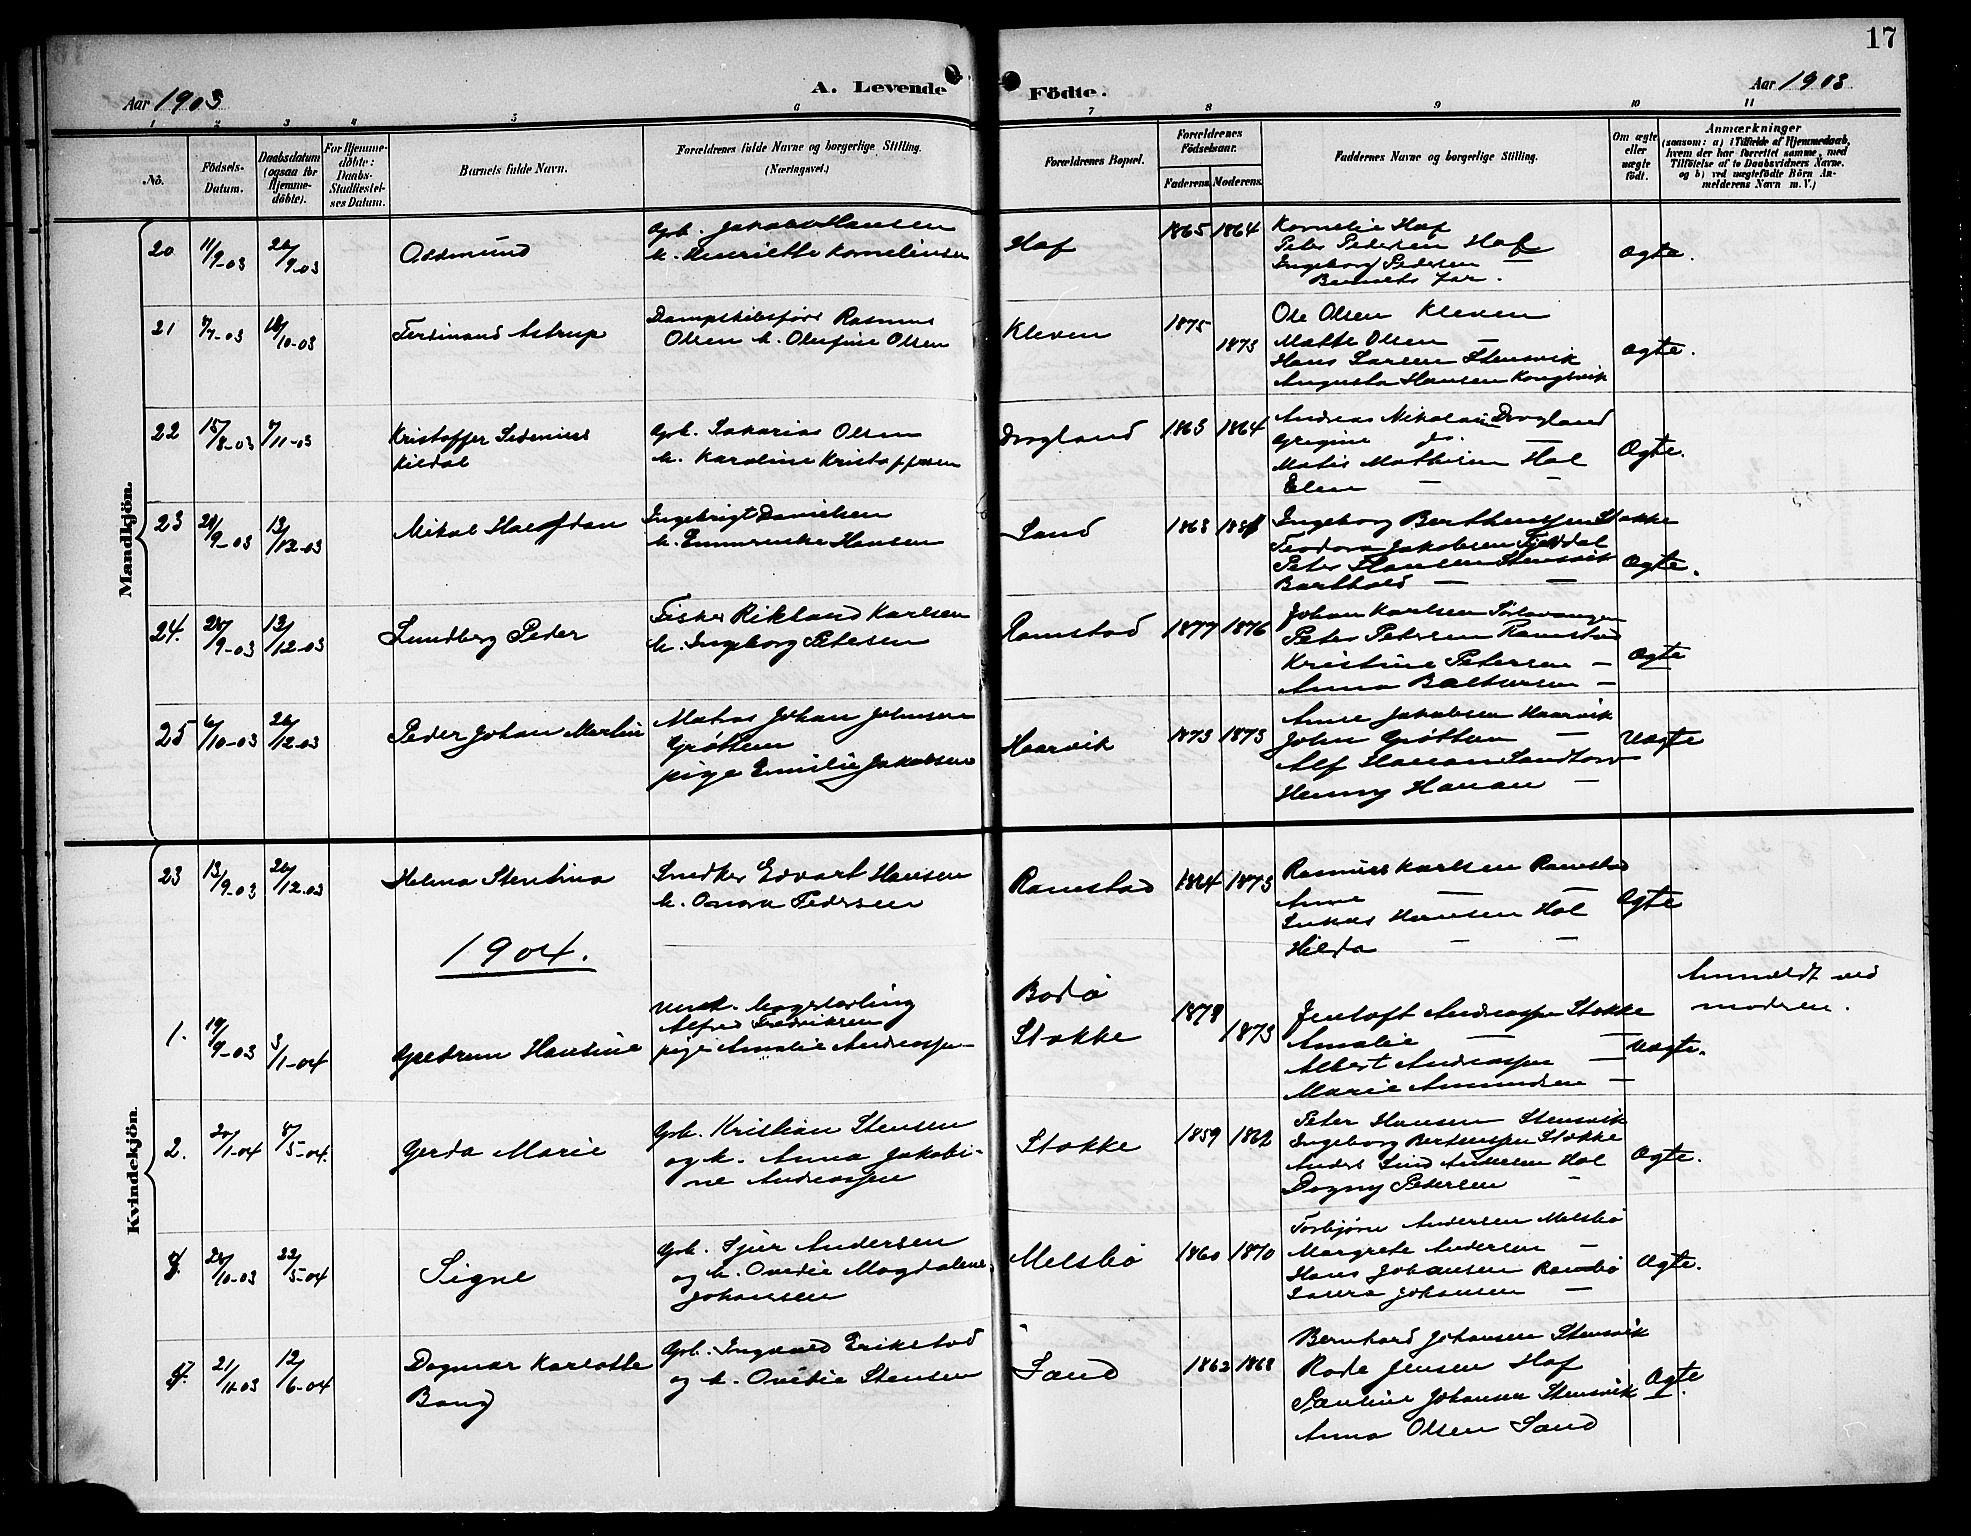 17
Aar 1903
A. Levende
Födte.
Aar 1903
1 2 3 4 5 6 7 8 9 10 11
No.
Födsels-
Datum.
Daabsdatum
(ogsaa for
Hjemme-
döbte).
For Hjemme-
döbte:
Daabs-
Stadfæstel-
ses Datum.
Barnets fulde Navn.
Forældrenes fulde Navne og borgerlige Stilling.
(Næringsvei.)
Forældrenes Bopæl.
Forældrenes
Födselsaar.
Faderens. Moderens.
Faddernes Navne og borgerlige Stilling.
Om ægte
eller
uægte
födt.
Anmærkninger
(saasom: a) i Tilfælde af Hjemmedaab,
hvem der har forrettet samme, med
Tilföielse af to Daabsvidners Navne.
og b) ved uægtefödte Börn An-
melderens Navn m. V.)
Mandkjön.
20
11/9-03
26/9-03
Aasmund
Gbr. Jakob Hansen
h. Henriette Korneliusen
Hof
1865 1864
Kornelie Hof
Peter Pedersen Hof
Ingeborg Pedersen —
Barnets Far.
Ægte.
21
7/7-03
18/10-03
Ferdinand Astrup
Dampskibsförer Rasmus
Olsen h. Olufine Olsen
Kleven
1875
1873
Ole Olsen Kleven
Mætte Olsen —
Hans Larsen Stensvik
Augusta Hansen Kongsvik
Ægte.
22
15/8-03
7/11-03
Kristoffer Sedenius
Kildal
Gbr. Sakarias Olsen
h. Karoline Kristoffersen
Drogland
1863 1864
Andreas Nikolai Drogland
Gregine do. —
Matis Mathisen Hol
Elen — —
Ægte.
23
21/9-03
13/12-03
Mikal Halfdan
Ingebrigt Danielsen
h. Emmrenske Hansen
Sand
1863
Ingeborg Bertheussen Stokke
Teodora Jakobsen Fjelldal
Peter Hansen Stensvik
Barthold — —
Ægte.
24.
28/9-03
13/12-03
Lundberg Peder
Fisker Rikland Karlsen
h. Ingeborg Petersen
Ramstad
1877 1876
Johan Karlsen
Peter Petersen Ramstad
Kristine Petersen —
Anna Baltersen —
Ægte
25
6/10-03
26/12-03
Peder Johan Martin
Matias Johan Johnsen
Gröttem
pige Emilie Jakobsen
Haarvik
1873 1873
Anne Jakobsen Haarvik
John Gröttem —
Alf Hanan Sandtorv
Henny Hanan —
Uægte
Kvindekjön.
23
13/9-03
26/12-03
Helma Stentina
Snedker Edvart Hansen
h. Anna Pedersen
Ramstad
1874 1873
Rasmus Karlsen Ramstad
Anne — —
Lukas Hansen Hol
Hilda — —
Ægte
1904.
1.
19/9-03
3/1-04
Gudrun Hansine
Unck. Bagerlærling
Alfred Fredriksen
pige Amalie Andreassen
Bodö
Stokke
1878
1873
Jentoft Andreassen Stokke
Amalie — —
Albert Andreassen —
Marie Amundsen —
Uægte.
Anmeldt ved
modren.
2.
20/1-04
8/5-04
Gerda Marie
Gbr. Kristian Stensen
og h. Anna Jakobi-
ne Andreassen
Stokke
1859 1862
Peter Hansen Stensvik
Ingeborg Berteussen Stokke
Anders Lind Andersen Hol
Dagny Pedersen —
Ægte.
28/10-03
22/5-04
Signe
Gbr. Sjur Andersen
og h. Ovedie Magdalene
Johansen
Melsbö
1860 1870
Torbjörn Andersen Melsbö
Margrete Andersen —
Hans Johansen Ramsbö
Laura Johansen —
Ægte.
21/11-03
12/6-04
Dagmar Karlotte
Bang
Gbr. Ingvald Erikstad
og h. Ovedie Stensen
Sand
1862 1868
Bernhard Johansen Stensvik
Rode Jensen Hof
Pauline Johansen Stensvik
Anna Olsen Sand
Ægte.